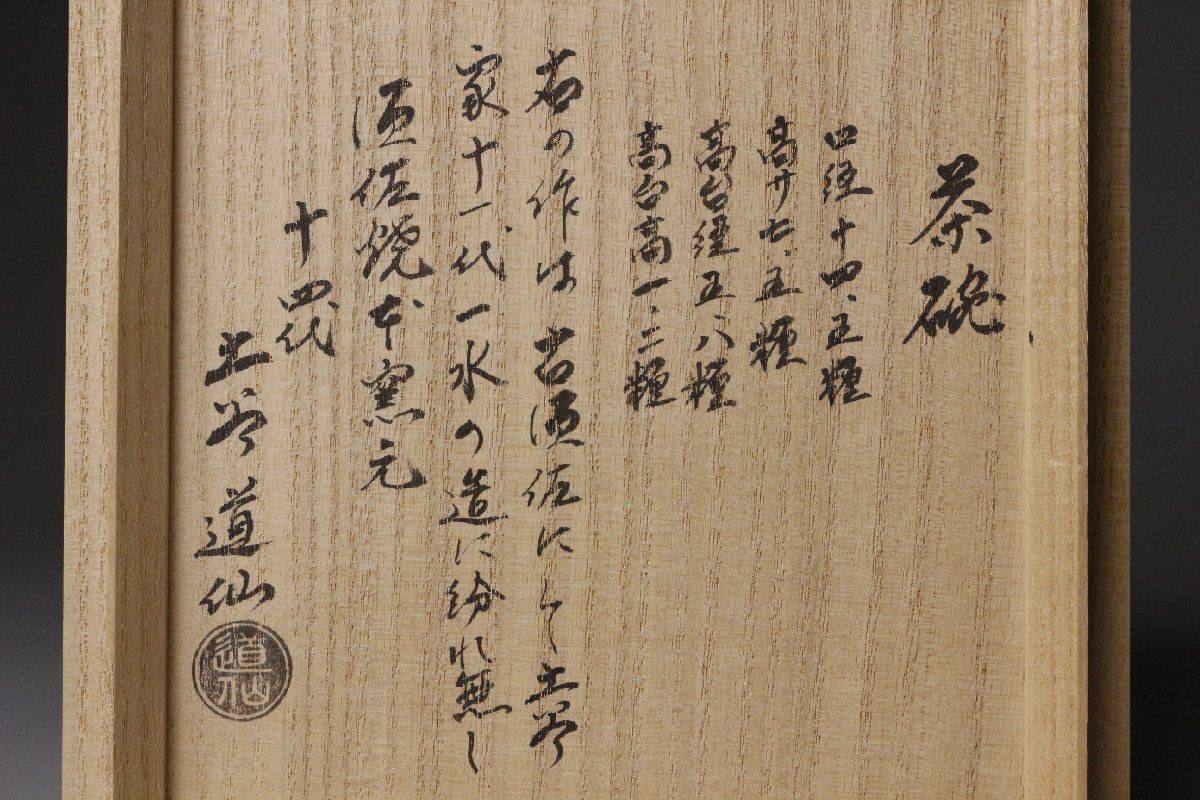 茶碗
口径十四、五糎
高サ七、五糎
高台径五、八糎
高台高一、二糎
右の作は古須佐にして土谷
家十一代一水の造に紛れ無し
須佐焼本窯元
十四代
土谷道仙
道仙